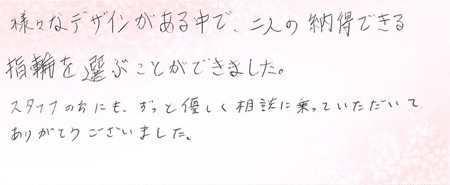 様々なデザインがある中で、二人の納得できる
指輪を選ぶことができました。
スタッフの方にも、ずっと優しく相談に乗っていただいて
ありがとうございました。